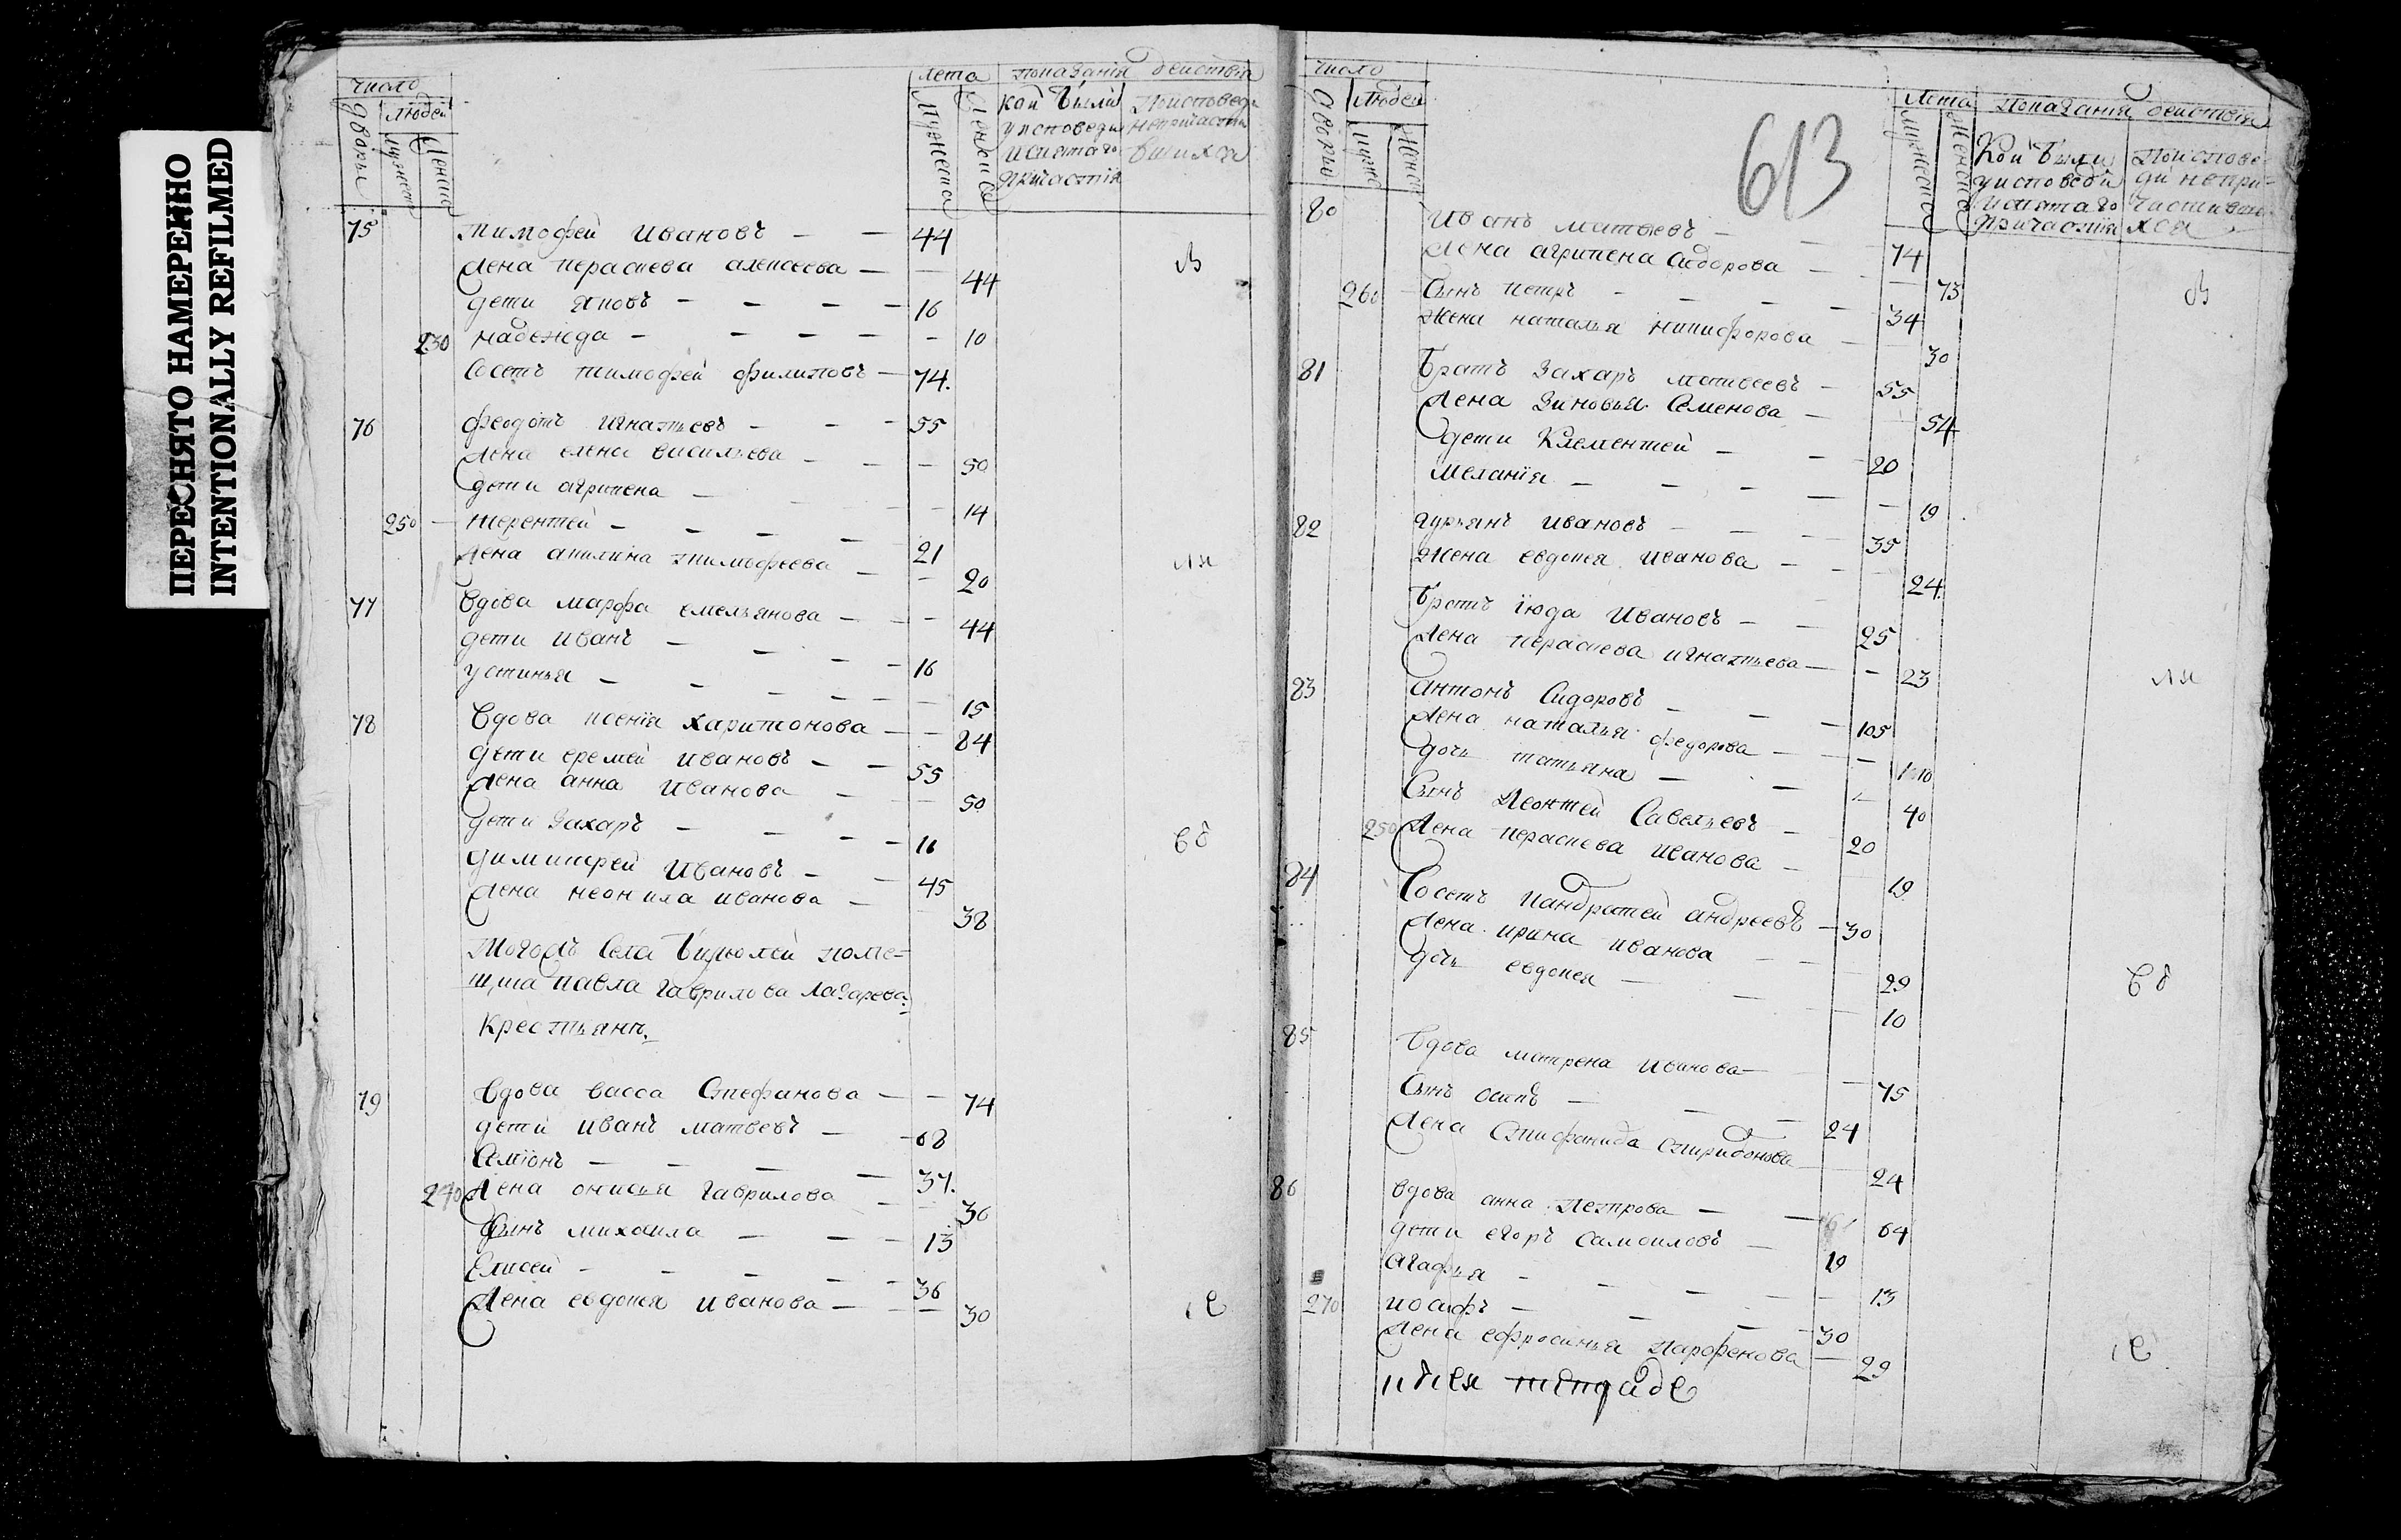 ПЕРЕСНЯТО НАМЕРЕННО
INTENTIONALLY REFILMED
число лета показании действа
дворы людей мужеска женска кои были у исповеди и святаго причастия
по исповеди не причастившихся
75 тимофей ивановъ — — 44
жена параскева алексеева — — 44
дети яковъ — — — — 16
230 надежда — — — — — 10
Соседъ тимофей филиповъ — 74.
76 феодотъ игнатьевъ — — — 55
жена елена васильева — — — 50
дети агрипена — — 14
250 — терентей — — — — 21
жена акилина тимофеева — — 20
77 вдова марфа емельянова — — — 44
дети иванъ — — — — 16
устинья — — — — — — 15
78 вдова ксенїя харитонова — — 84
дети еремей ивановъ — — 55
жена анна иванова — — 50
дети захаръ — — — — 16
димитрей ивановъ — — 45
жена неонила иванова — 38
Тогожъ села поме-
щика павла гаврилова лазарева
крестьяне.
79 вдова васса Стефанова — — 74
дети иванъ матвеевъ — — 68
Семїонъ — — — — 37.
240 жена онисья гаврилова — — 36
сынъ михаила — — — 13
Елисей — — — — — — 36
жена евдокея иванова — — — 30
число
дворы людей мужеска женска
613
лета показания действия
мужеска женска Кои были у исповеди и святаго причастия
по исповеди не причастившихся
80 иванъ матвеевъ — — — 74
жена агрипена сидорова — — 73
260 — Сынъ петръ — — — — 34
жена наталья никифорова — — 30
81 братъ захаръ матвеевъ — 55
жена зиновья Семенова — 54
дети Клементей — — — 20
меланїя — — — — — 19
82 гурьянъ ивановъ — — — 35
жена евдокея иванова — — — 24
братъ їюда ивановъ — — 25
жена параскева игнатьева — — 23
83 антонъ Сидоровъ — — — 105
жена наталья федорова — — 100
дочь татьяна — — — 40
Сынъ Леонтей Савельевъ — 20
250 жена параскева иванова — 19
84 Соседъ кандратей андреевъ — 30
жена ирина иванова — — 29
дочь евдокея — — — — 10
85 вдова матрена иванова — — 75
Сынъ осипъ — — — 24
жена Стефанида спиридонова — 24
86 вдова анна петрова — — 64
дети егоръ самоиловъ — 19
агафья — — — — — 13
270 иосифъ — — — — 30
жена ефросинья парфенова — 29